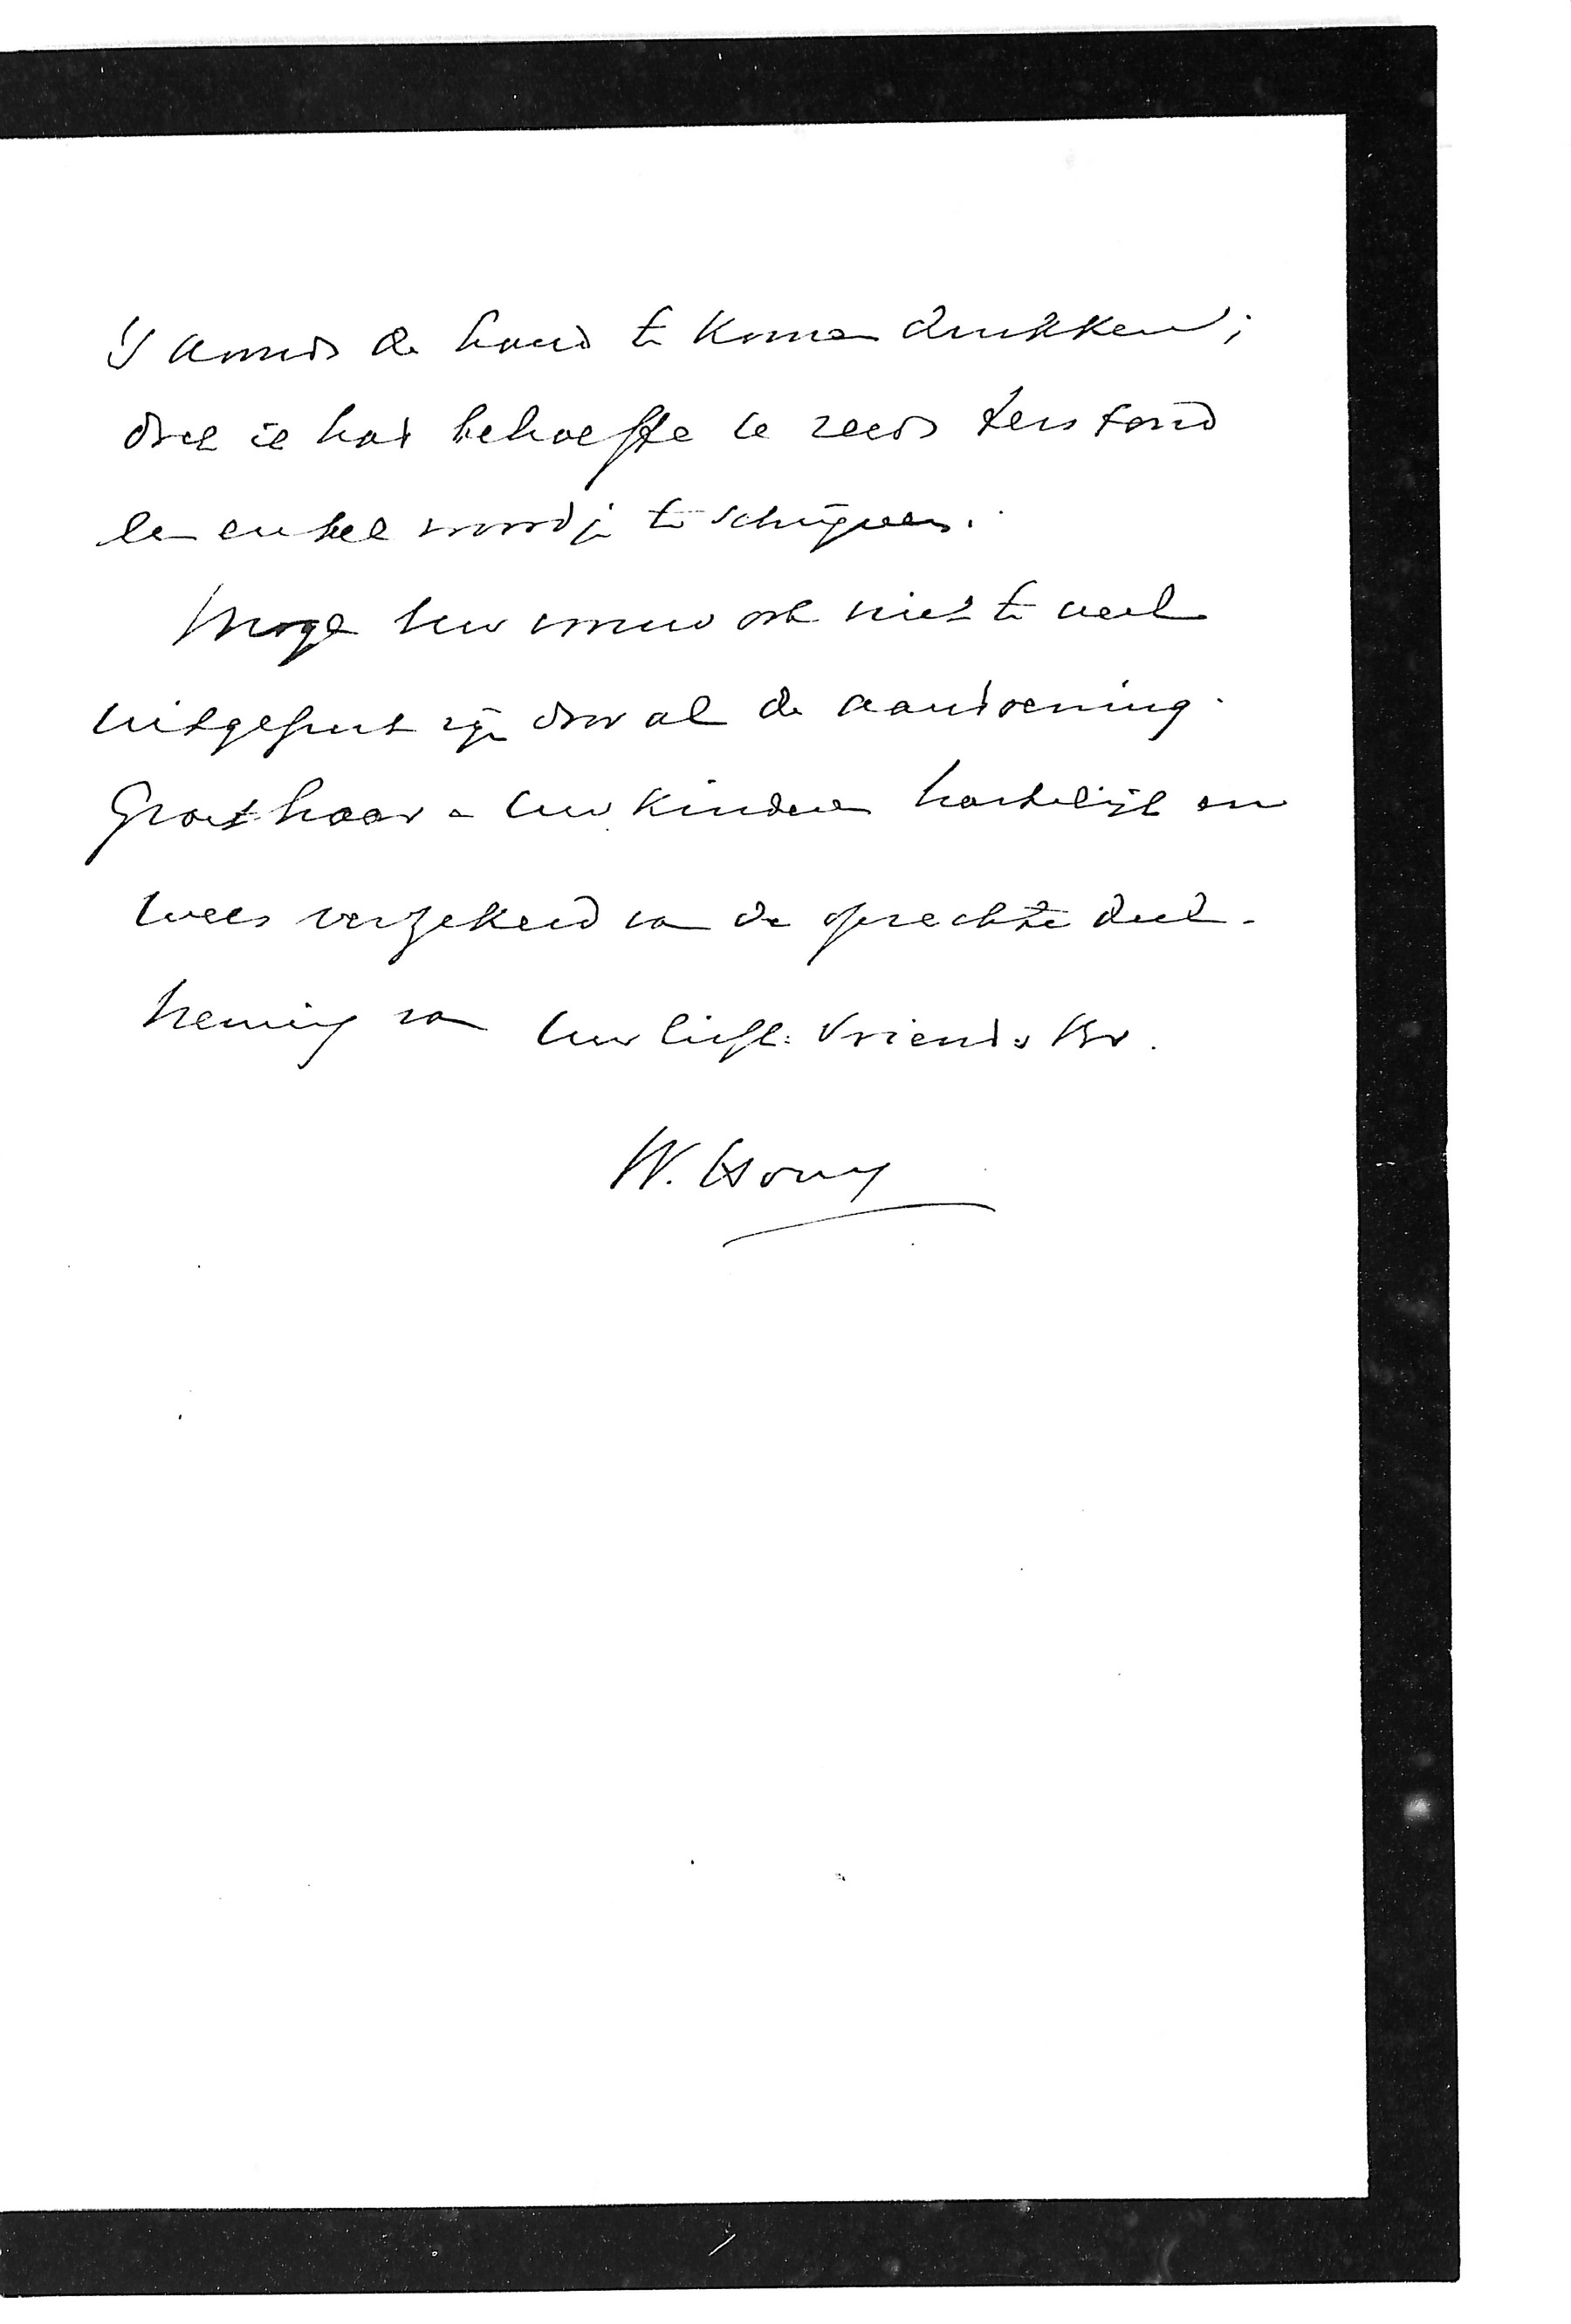 's avonds de hand te komen drukken;
doch ik had behoefte U reeds terstond
een enkel woordje te schrijven.
Moge Uw vrouw ook niet te veel
uitgeput zijn door al de aandoening.
Groet haar en Uw kinderen hartelijk en
wees verzekerd van de oprechte deel-
neming van Uw liefh: Vriend & Br.
W. Hovy